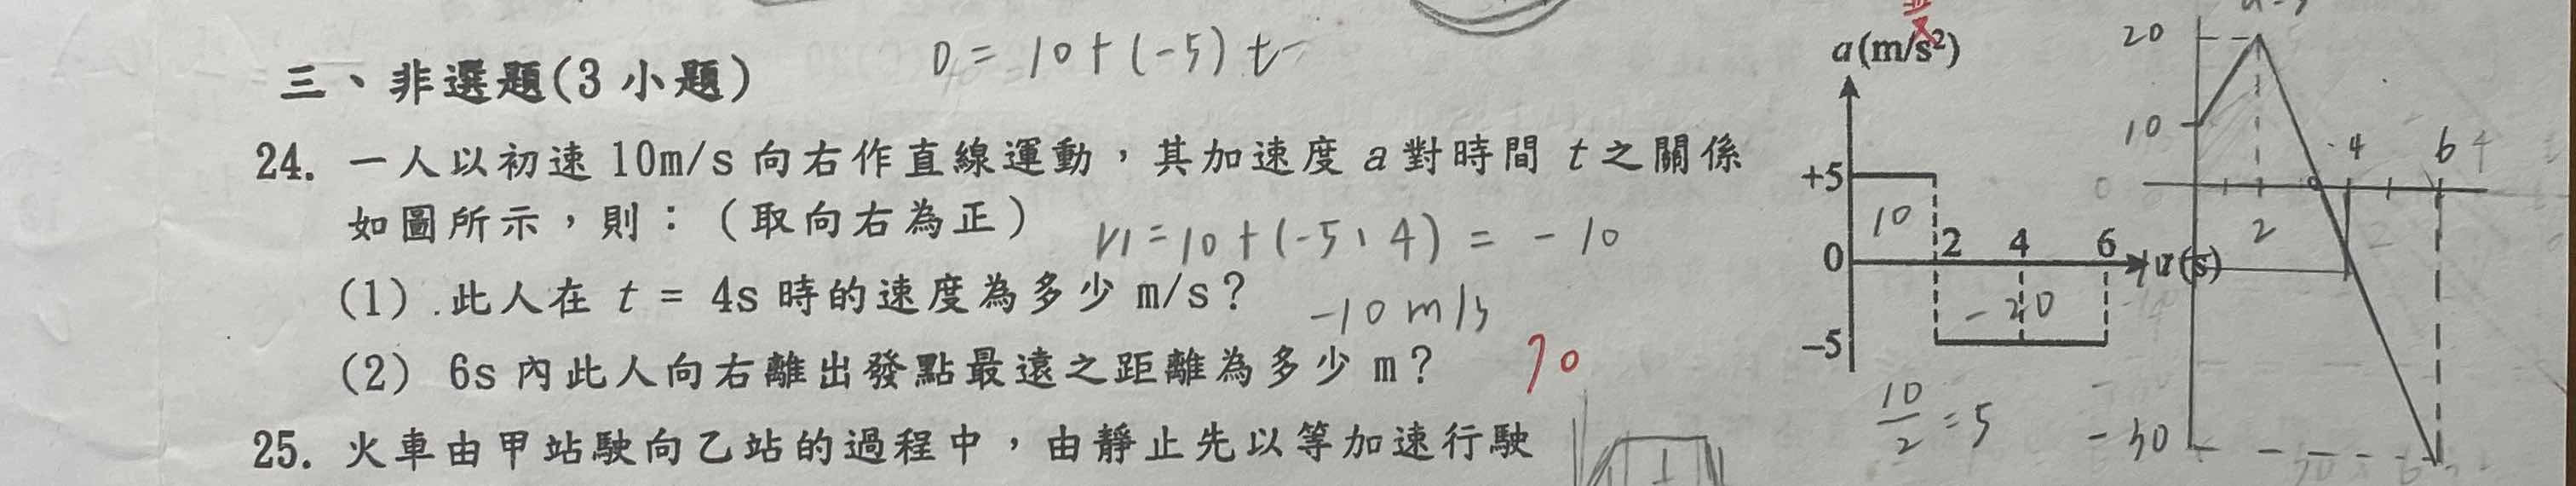 0 = 10 + (-5) t
三、非選題(3 小題)
24. 一人以初速 10m/s 向右作直線運動，其加速度 a 對時間 t 之關係
如圖所示，則：（取向右為正）
= 10 + (-5 · 4) = - 10
(1) 此人在 t = 4s 時的速度為多少 m/s？
-10 m/s
(2) 6s 內此人向右離出發點最遠之距離為多少 m？
70
25. 火車由甲站駛向乙站的過程中，由靜止先以等加速行駛
a(m/s²)
+5
10
0
2 4 6
(s)
-20
-5
10/2 = 5
20
10
0
4 6
2